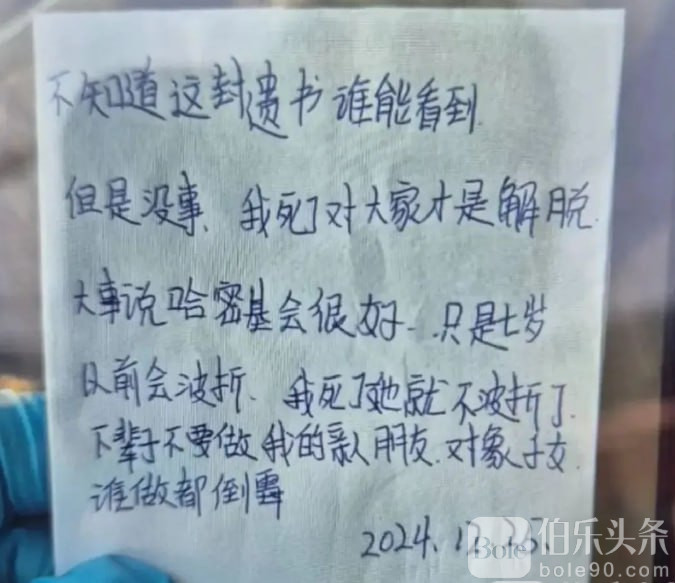 不知道这封遗书谁能看到.
但是没事、我死了对大家才是解脱.
大事说哈密基会很好..只是七岁
以前会波折、我死了她就不波折了.
下辈子不要做我的亲人朋友.对象子女.
谁做都倒霉
2024.
Bole 伯乐头条
bole90.com